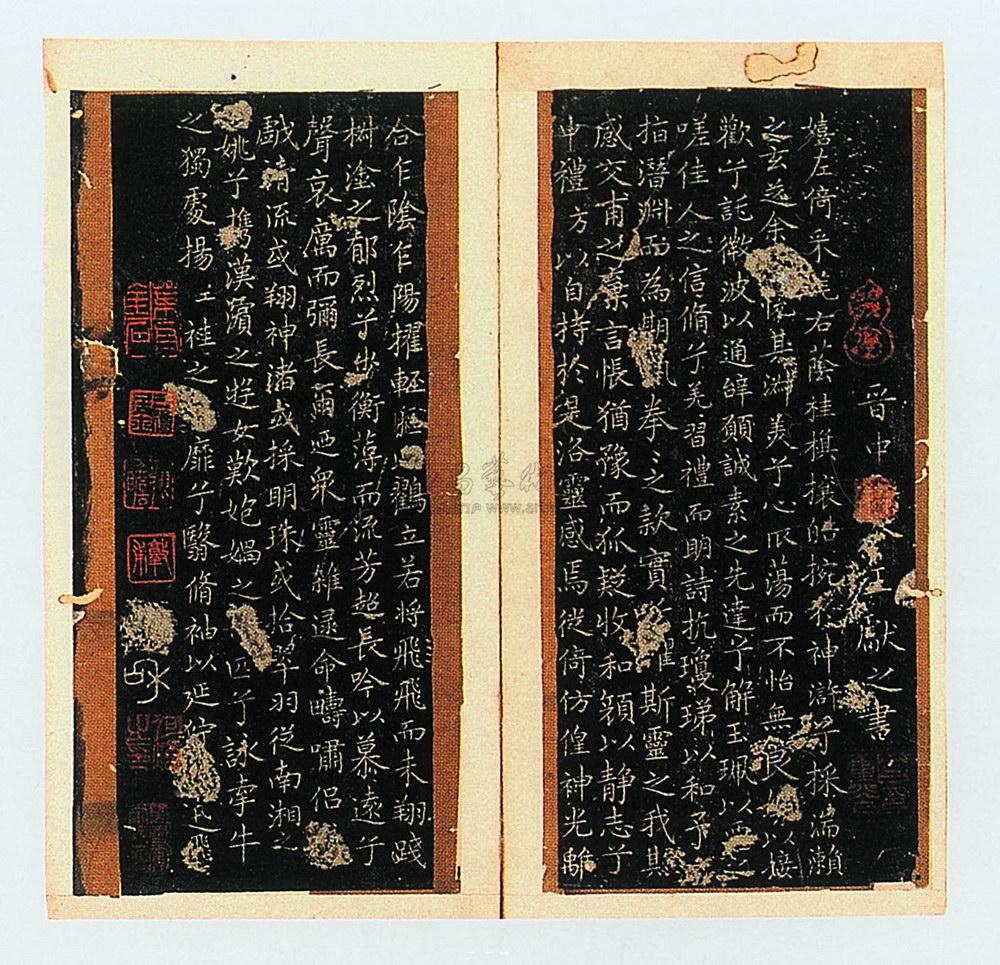 晉中王獻之書
嬉左倚采旄右蔭桂旗攘皓捥於神滸兮採湍瀨
之玄芝余其淑美兮心振蕩而不怡無良以接
歡兮託微波以通辭願誠素之先達兮解玉珮以要之
嗟佳人之信脩兮羌習禮而明詩抗瓊珶以和予
指潛淵而為期執拳〻之款實懼斯靈之我欺
感交甫之棄言悵猶豫而狐疑收和顏以靜志兮
申禮方以自持於是洛靈感焉徙倚仿偟神光離
合乍陰乍陽擢輕軀以鶴立若將飛飛而未翔踐
椒塗之郁烈兮步衡薄而流芳超長吟以慕遠兮
聲哀厲而彌長爾迺眾靈雜遝命疇嘯侶
戲清流或翔神渚或採明珠或拾翠羽從南湘之
姚兮攜漢濱之遊女歎匏媧之匹兮詠牽牛
之獨處揚袿之靡兮翳脩袖以延佇迅飛